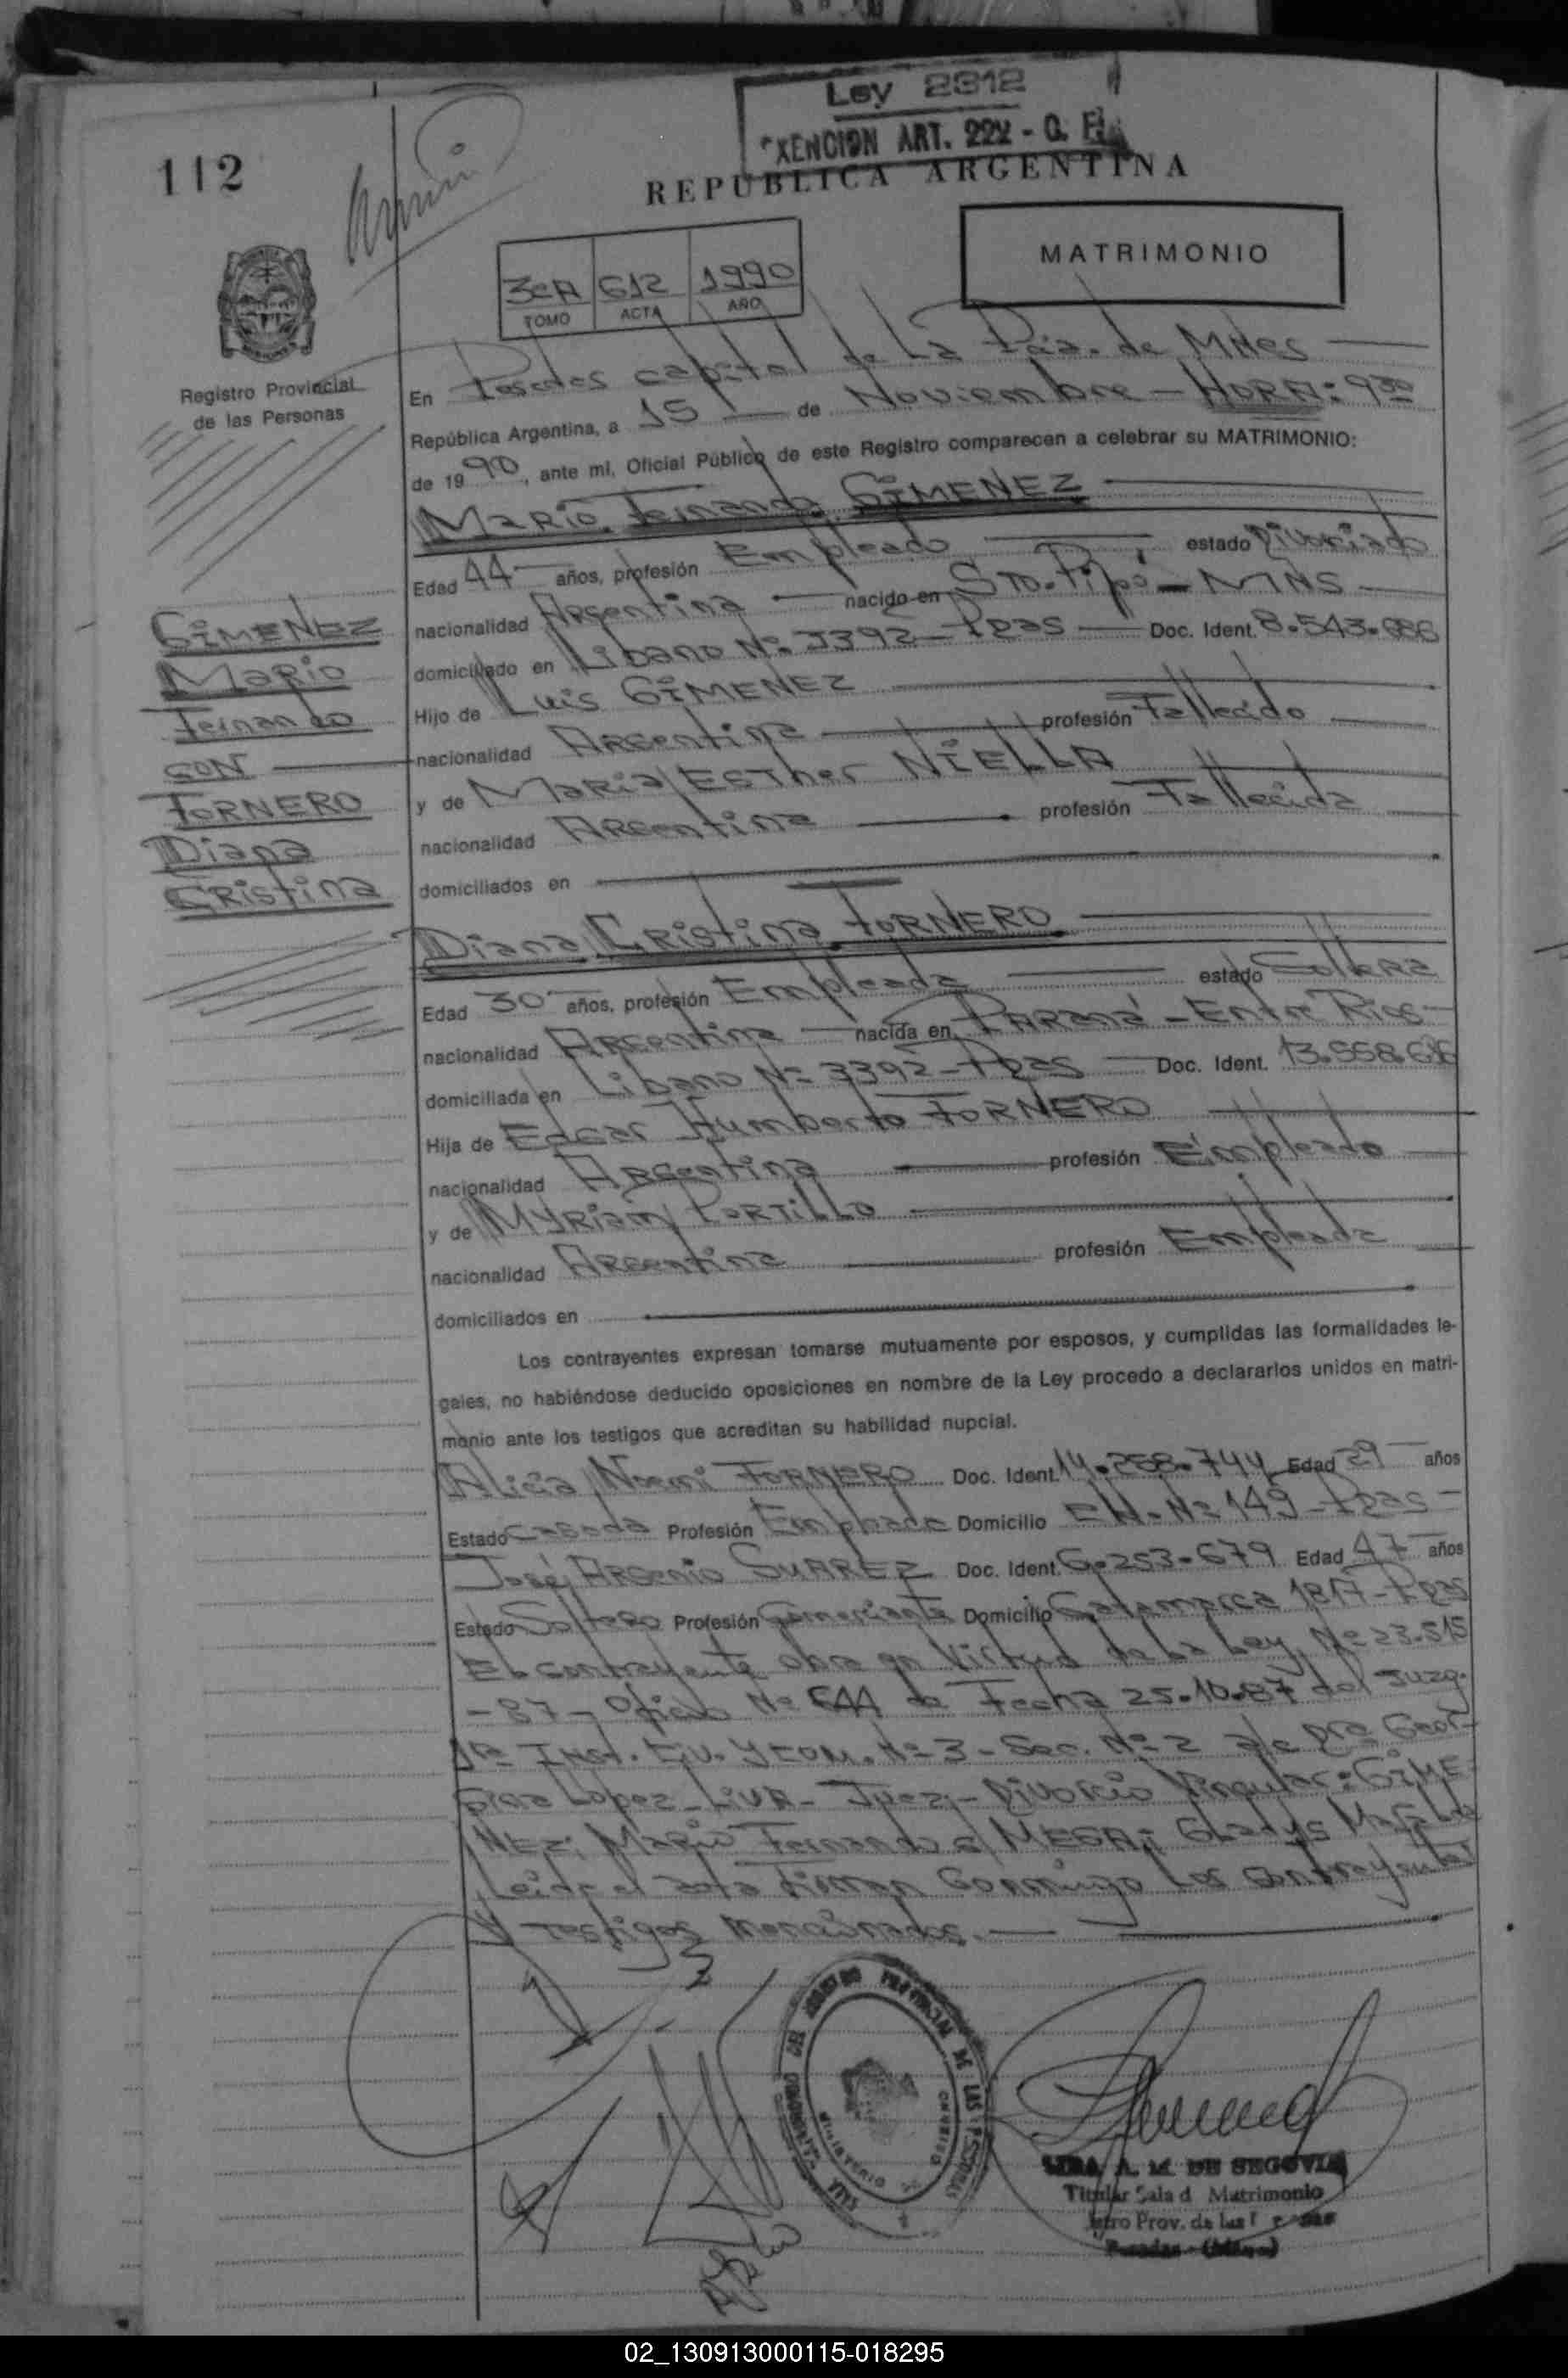 Ley 2312
EXENCION ART. 222 - C. F.
112
REPUBLICA ARGENTINA
MATRIMONIO
3eA 612 1990
TOMO ACTA AÑO
Registro Provincial
de las Personas
En Posadas capital de La Pcia. de Mnes
República Argentina, a 15 de Noviembre - HORA: 930
de 1990, ante mí, Oficial Público de este Registro comparecen a celebrar su MATRIMONIO:
Mario Fernando GIMENEZ
Edad 44 años, profesión Empleado estado Divorciado
nacionalidad Argentina nacido en Sto. Pipó - MNS
domiciliado en Libano Nº 3392 - Pdas Doc. Ident. 8.543.686
Hijo de Luis GIMENEZ
nacionalidad Argentina profesión Fallecido
y de Maria Esther NIELLA
nacionalidad Argentina profesión Fallecida
domiciliados en
GIMENEZ
Mario
Fernando
CON
FORNERO
Diana
Cristina
Diana Cristina FORNERO
Edad 30 años, profesión Empleada estado Soltera
nacionalidad Argentina nacida en Paraná - Entre Rios -
domiciliada en Libano Nº 3392 - Pdas Doc. Ident.
Hija de Edgar Humberto FORNERO
nacionalidad Argentina profesión Empleado
y de Myriam PORTILLO
nacionalidad Argentina profesión Empleada
domiciliados en
Los contrayentes expresan tomarse mutuamente por esposos, y cumplidas las formalidades le-
gales, no habiéndose deducido oposiciones en nombre de la Ley procedo a declararlos unidos en matri-
monio ante los testigos que acreditan su habilidad nupcial.
Alicia Noemi FORNERO Doc. Ident. 14.258.744 Edad 29 años
Estado Casada Profesión Empleada Domicilio Nº 149 - Pdas -
José Arsenio SUAREZ Doc. Ident. 6.253.679 Edad 47 años
Estado Soltero Profesión Comerciante Domicilio Catamarca 1817 - Pdas
El contrayente obra en Virtud de La Ley Nº 23.515
- 87 - Oficio Nº 644 de Fecha 25.10.87 del Juzg.
1ra Inst. Civ. y Com. Nº 3 - Sec. Nº 2 Dra Geor-
gina Lopez - Liva - Juez - Divorcio Vincular: GIME-
NEZ; Mario Fernando c/ MEZA; Gladys
Leida el acta firman Conmigo Los contrayentes
y testigos mencionados.
REGISTRO PROVINCIAL DE LAS PERSONAS
MINISTERIO DE GOBIERNO
A. M. DE SEGOVIA
Titular Sala d Matrimonio
Prov. de las
Posadas - (Mnes)
02_130913000115-018295